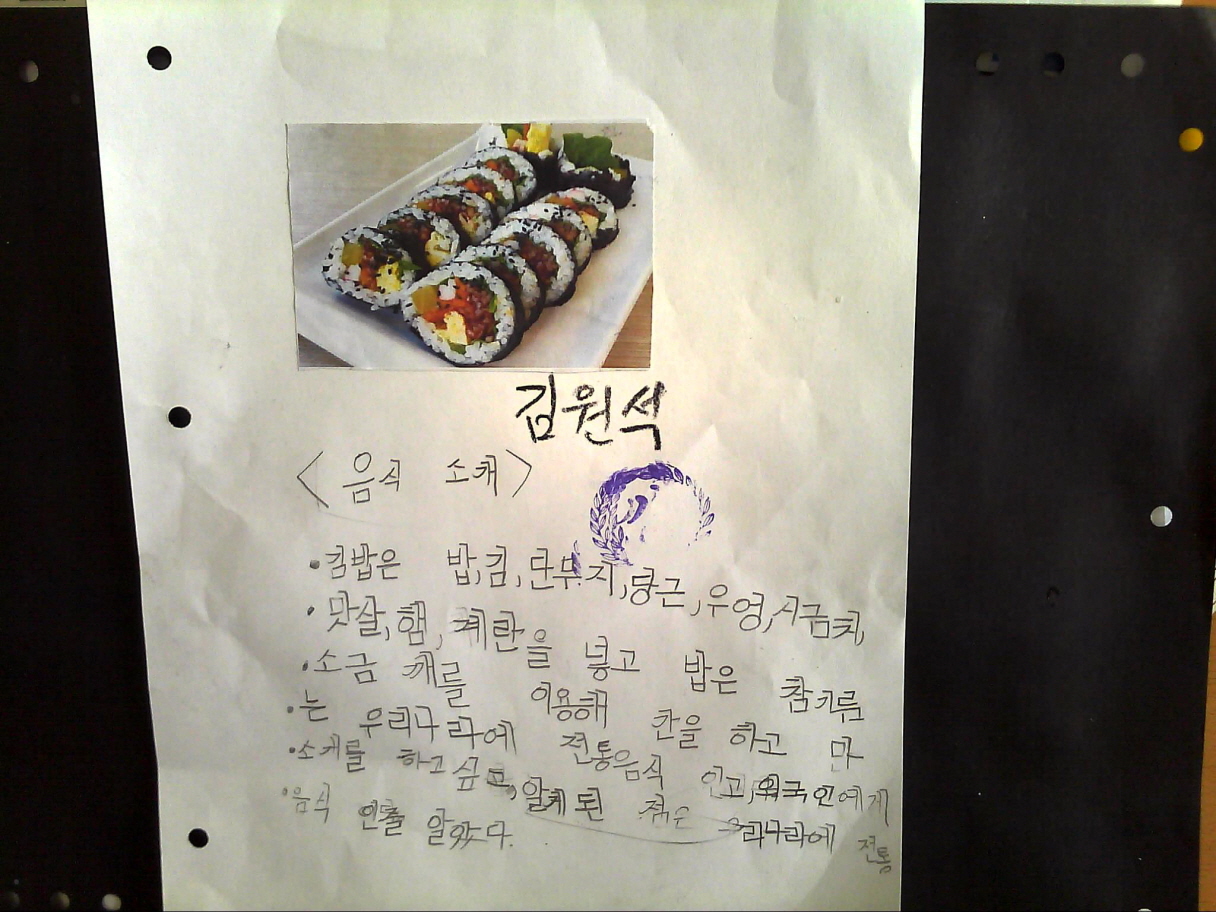 김원석
<음식 소개>
·김밥은 밥,김,단무지,당근,우엉,시금치,
·맛살,햄,계란을 넣고 밥은 참기름
·소금 깨를 이용해 간을 하고 만
·는 우리나라에 전통음식 인고,외국인에게
·소개를 하고 싶고,알게 된 점은 라나라에 전통
·음식 인줄 알았다.